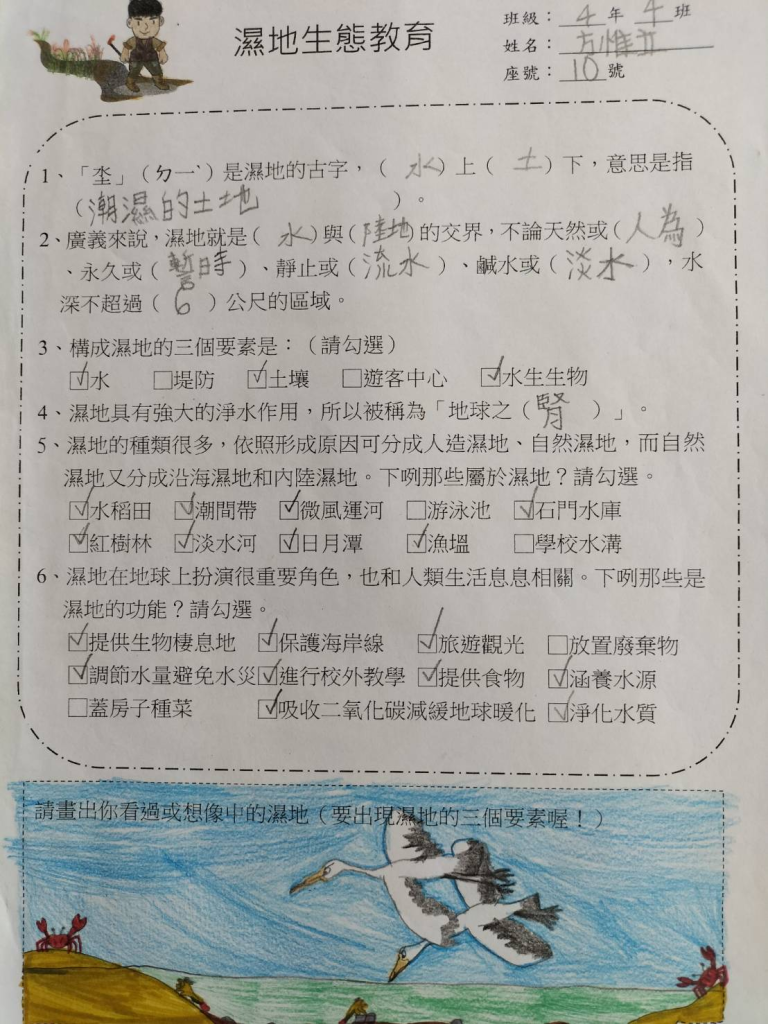 濕地生態教育
班級：4年4班
姓名：方惟立
座號：10號
1、「坔」（ㄅㄧˋ）是濕地的古字，（水）上（土）下，意思是指
（潮濕的土地）。
2、廣義來說，濕地就是（水）與（陸地）的交界，不論天然或（人為）
、永久或（暫時）、靜止或（流水）、鹹水或（淡水），水
深不超過（6）公尺的區域。
3、構成濕地的三個要素是：（請勾選）
☑水 □堤防 ☑土壤 □遊客中心 ☑水生生物
4、濕地具有強大的淨水作用，所以被稱為「地球之（腎）」。
5、濕地的種類很多，依照形成原因可分成人造濕地、自然濕地，而自然
濕地又分成沿海濕地和內陸濕地。下咧那些屬於濕地？請勾選。
☑水稻田 ☑潮間帶 ☑微風運河 □游泳池 ☑石門水庫
☑紅樹林 ☑淡水河 ☑日月潭 ☑漁塭 □學校水溝
6、濕地在地球上扮演很重要角色，也和人類生活息息相關。下咧那些是
濕地的功能？請勾選。
☑提供生物棲息地 ☑保護海岸線 ☑旅遊觀光 □放置廢棄物
☑調節水量避免水災 ☑進行校外教學 ☑提供食物 ☑涵養水源
□蓋房子種菜 ☑吸收二氧化碳減緩地球暖化 ☑淨化水質
請畫出你看過或想像中的濕地（要出現濕地的三個要素喔！）